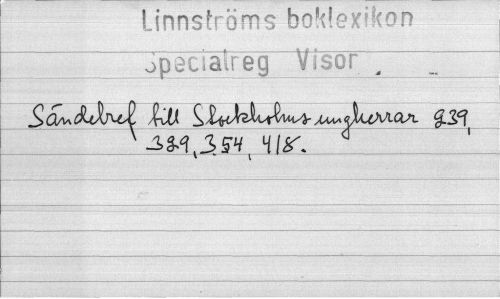 Linnströms boklexikon
Specialreg Visor
Sändebref till Stockholms ungherrar 239,
329, 354, 418.